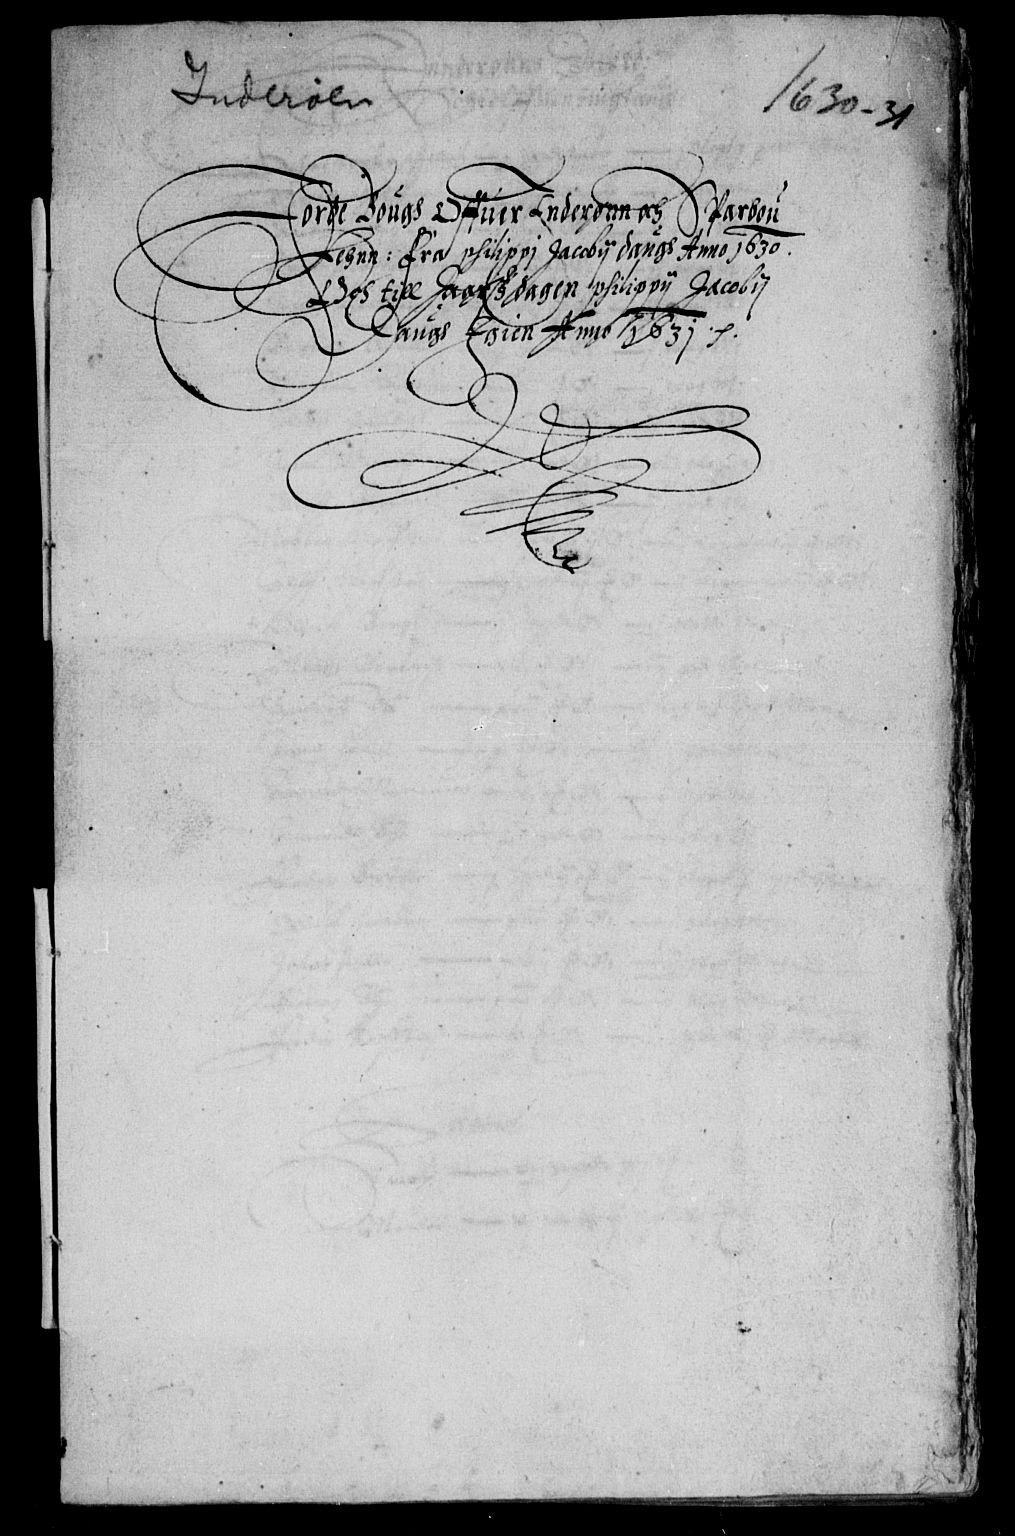 Inderøen
1630-31
Jorde Bougs Offuer Enderønn och Sparbou
Lehnn: fra philippi Jacobij daugs Anno 1630.
Och till Aarsdagen philippij Jacobij
Daugs Igien Anno 1631.